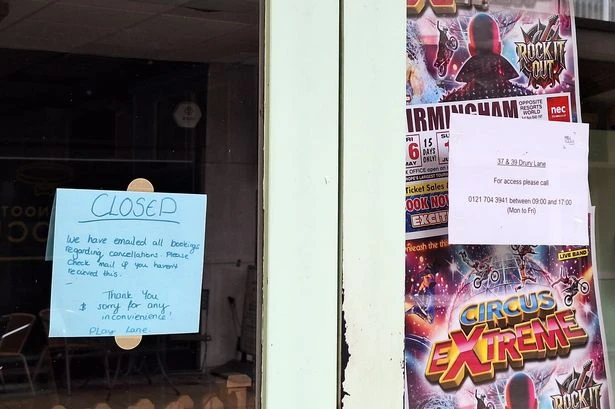 CLOSED
We have emailed all bookings
regarding cancellations. Please
check mail if you haven't
recieved this.
Thank You
& sorry for any
inconvenience!
Play Lane
ROCK IT
OUT
BIRMINGHAM
OPPOSITE
RESORTS
WORLD
nec
FRI
6
MAY
15
DAYS
ONLY!
SU
1
Ticket Sales &
OOK NO
EXCIT
37 & 39 Drury Lane
For access please call
0121 704 3941 between 09:00 and 17:00
(Mon to Fri)
unleash the
LIVE BAND
CIRCUS
EXTREME
ROCK IT